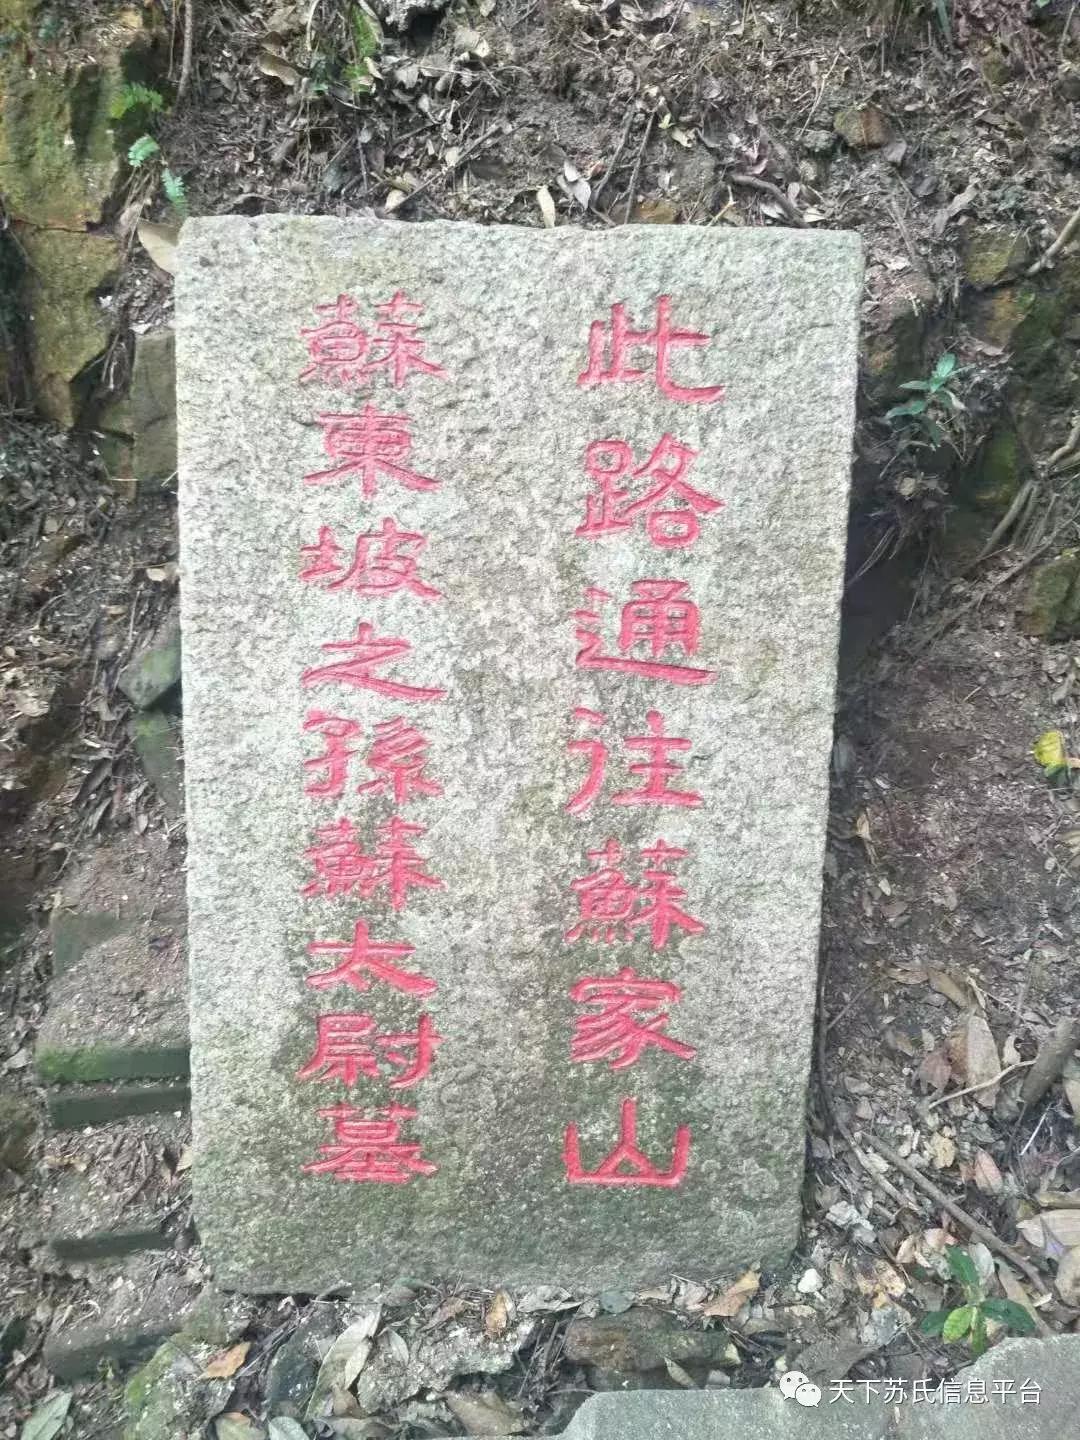 此路通往蘇家山
蘇東坡之孫蘇太尉墓
天下苏氏信息平台